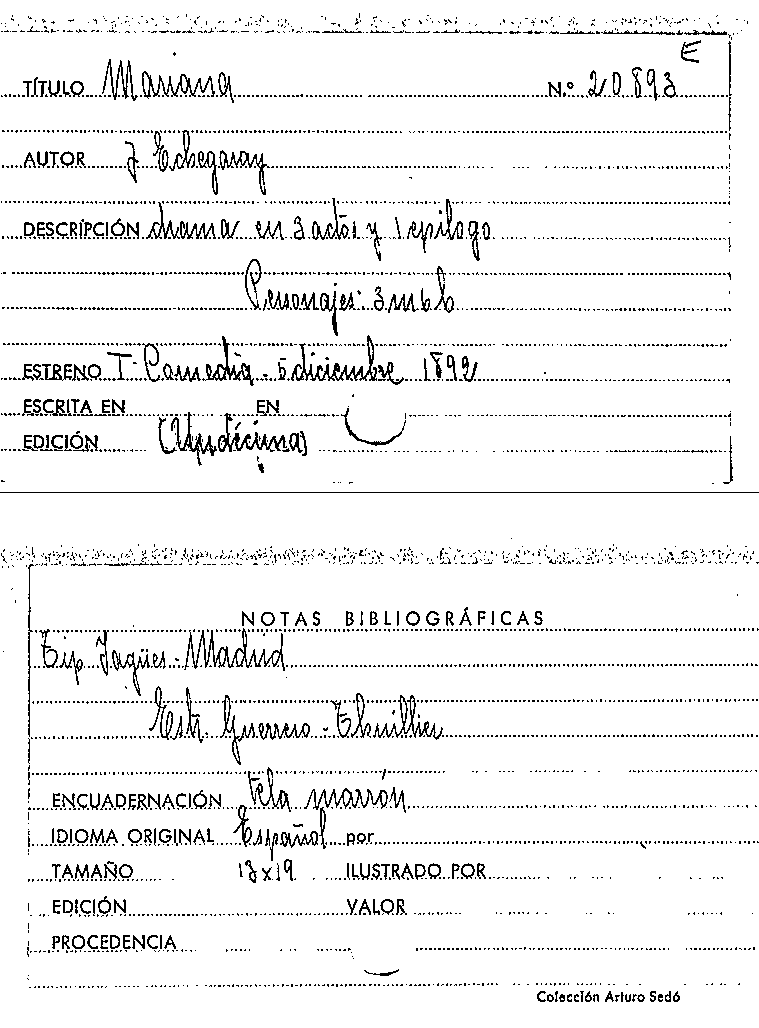 E
TÍTULO Mariana N.º 20893
AUTOR J Echegaray
DESCRIPCIÓN drama en 3 actos y 1 epilogo
Personajes: 3 m 6 h
ESTRENO T. Comedia - 5 diciembre 1892
ESCRITA EN EN
EDICIÓN (Undécima)
NOTAS BIBLIOGRÁFICAS
Tip Yagües - Madrid
Estr. Guerrero - Thuillier
ENCUADERNACIÓN tela marrón
IDIOMA ORIGINAL Español por
TAMAÑO 13x19 ILUSTRADO POR
EDICIÓN VALOR
PROCEDENCIA
Colección Arturo Sedó